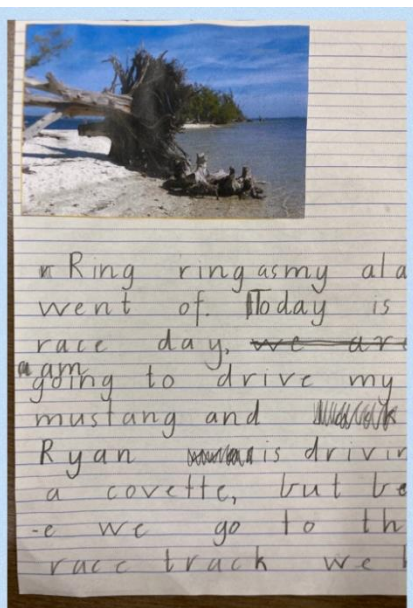 Ring ring as my ala
went of. Today is
race day, we are
am
going to drive my
mustang and
Ryan is drivin
a covette, but be
-e we go to th
race track we